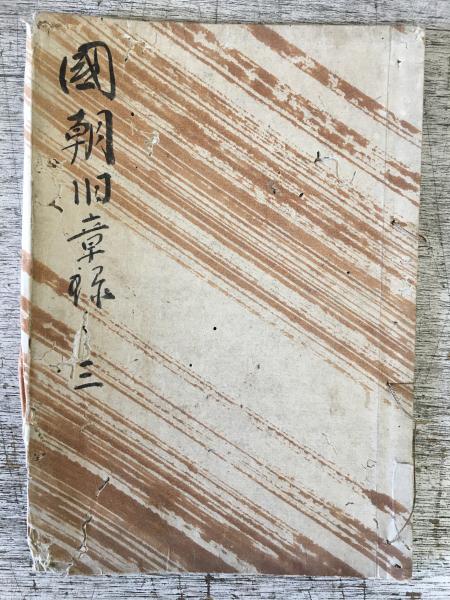 國朝旧章録之三